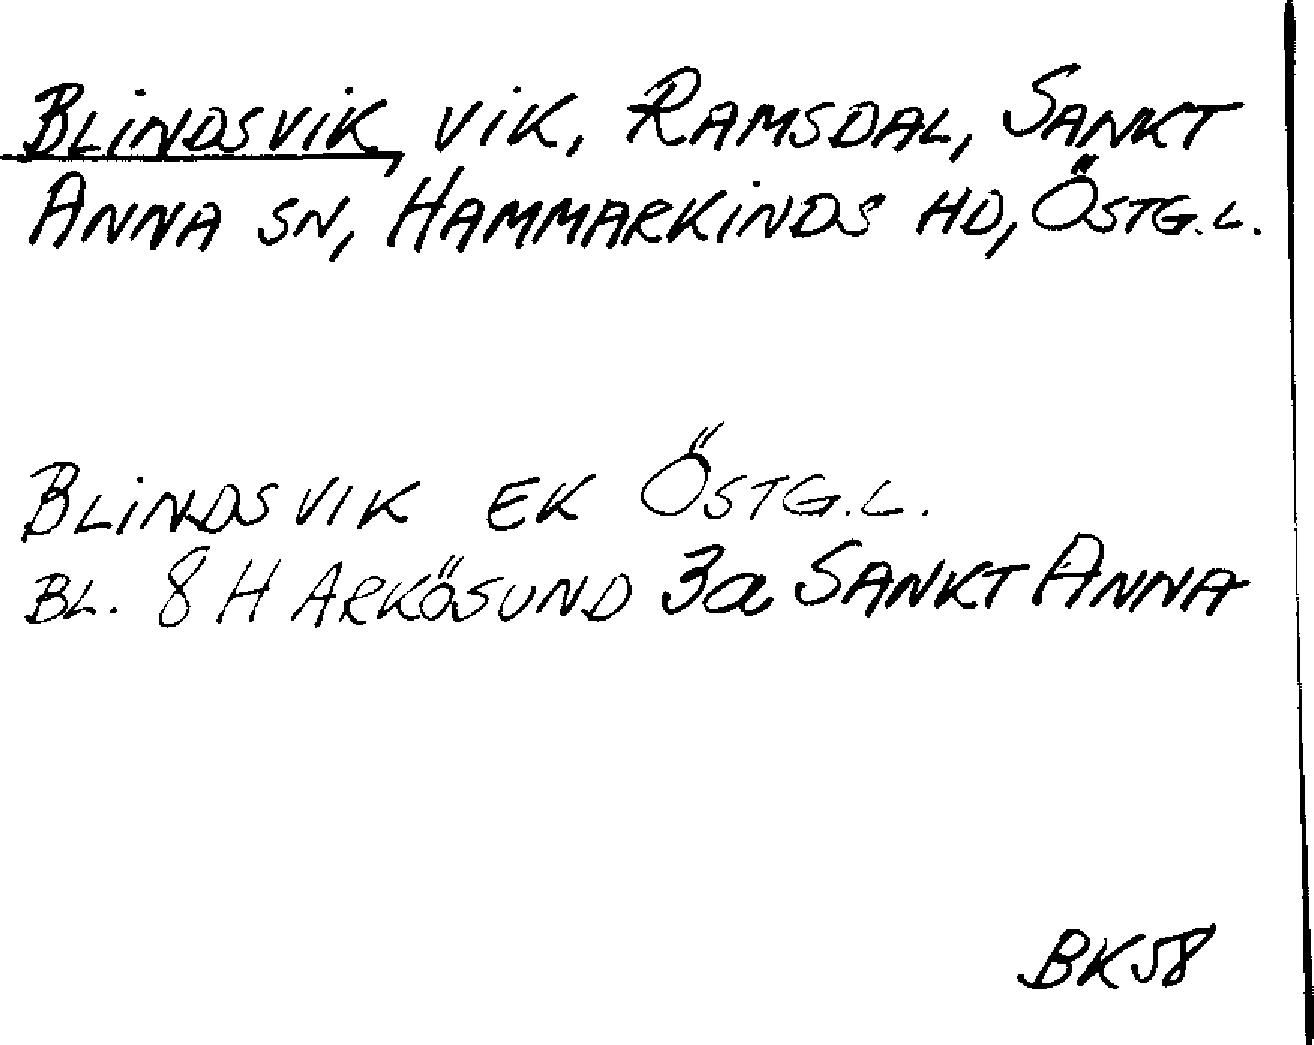 BLINDSVIK, VIK, RAMSDAL, SANKT
ANNA SN, HAMMARKINDS HD, ÖSTG.L.
BLINDSVIK EK ÖSTG.L.
BL. 8 H ARKÖSUND 3a SANKT ANNA
BK58